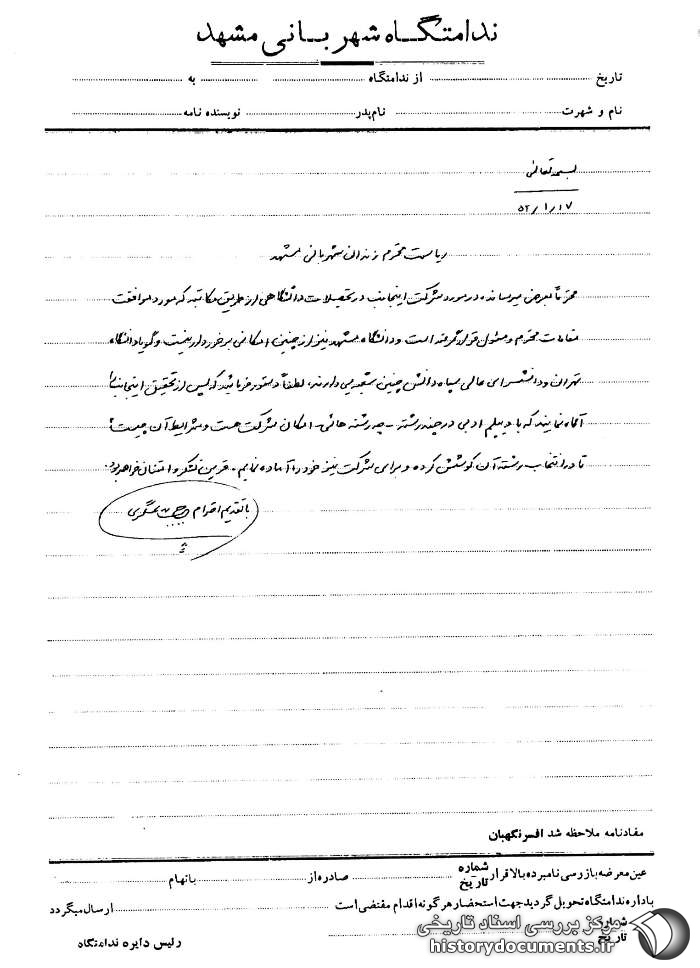 ندامتگاه شهربانی مشهد
تاریخ از ندامتگاه به
نام و شهرت نام پدر نویسنده نامه
بسمه تعالی
۵۲/۱/۱۷
ریاست محترم زندان شهربانی مشهد
محترماً بعرض میرساند در مورد شرکت اینجانب در تحصیلات دانشگاهی از طریق مکاتبه که مورد موافقت
مقامات محترم و مسئول قرار گرفته است و دانشگاه مشهد نیز از چنین امکانی برخوردار نیست و گویا دانشگاه
تهران و دانشسرای عالی سپاه دانش چنین شعبه‌ای دارند، لطفاً دستور فرمائید که پس از تحقیق اینجانب را
آگاه نمایند که با دیپلم ادبی در چند رشته - چه رشته هائی - امکان شرکت هست و شرایط آن چیست؟
تا در انتخاب رشته آن کوشش کرده و برای شرکت نیز خود را آماده نمایم. قرین تشکر و امتنان خواهد بود
با تقدیم احترام عسگری
مفادنامه ملاحظه شد افسر نگهبان
عین معرضه بازرسی نامبرده بالا قرار شماره صادره از باتهام
تاریخ
باداره ندامتگاه تحویل گردید جهت استحضار هر گونه اقدام مقتضی است ارسال میگردد
شماره
تاریخ
رئیس دایره ندامتگاه
مرکز بررسی اسناد تاریخی
historydocuments.ir